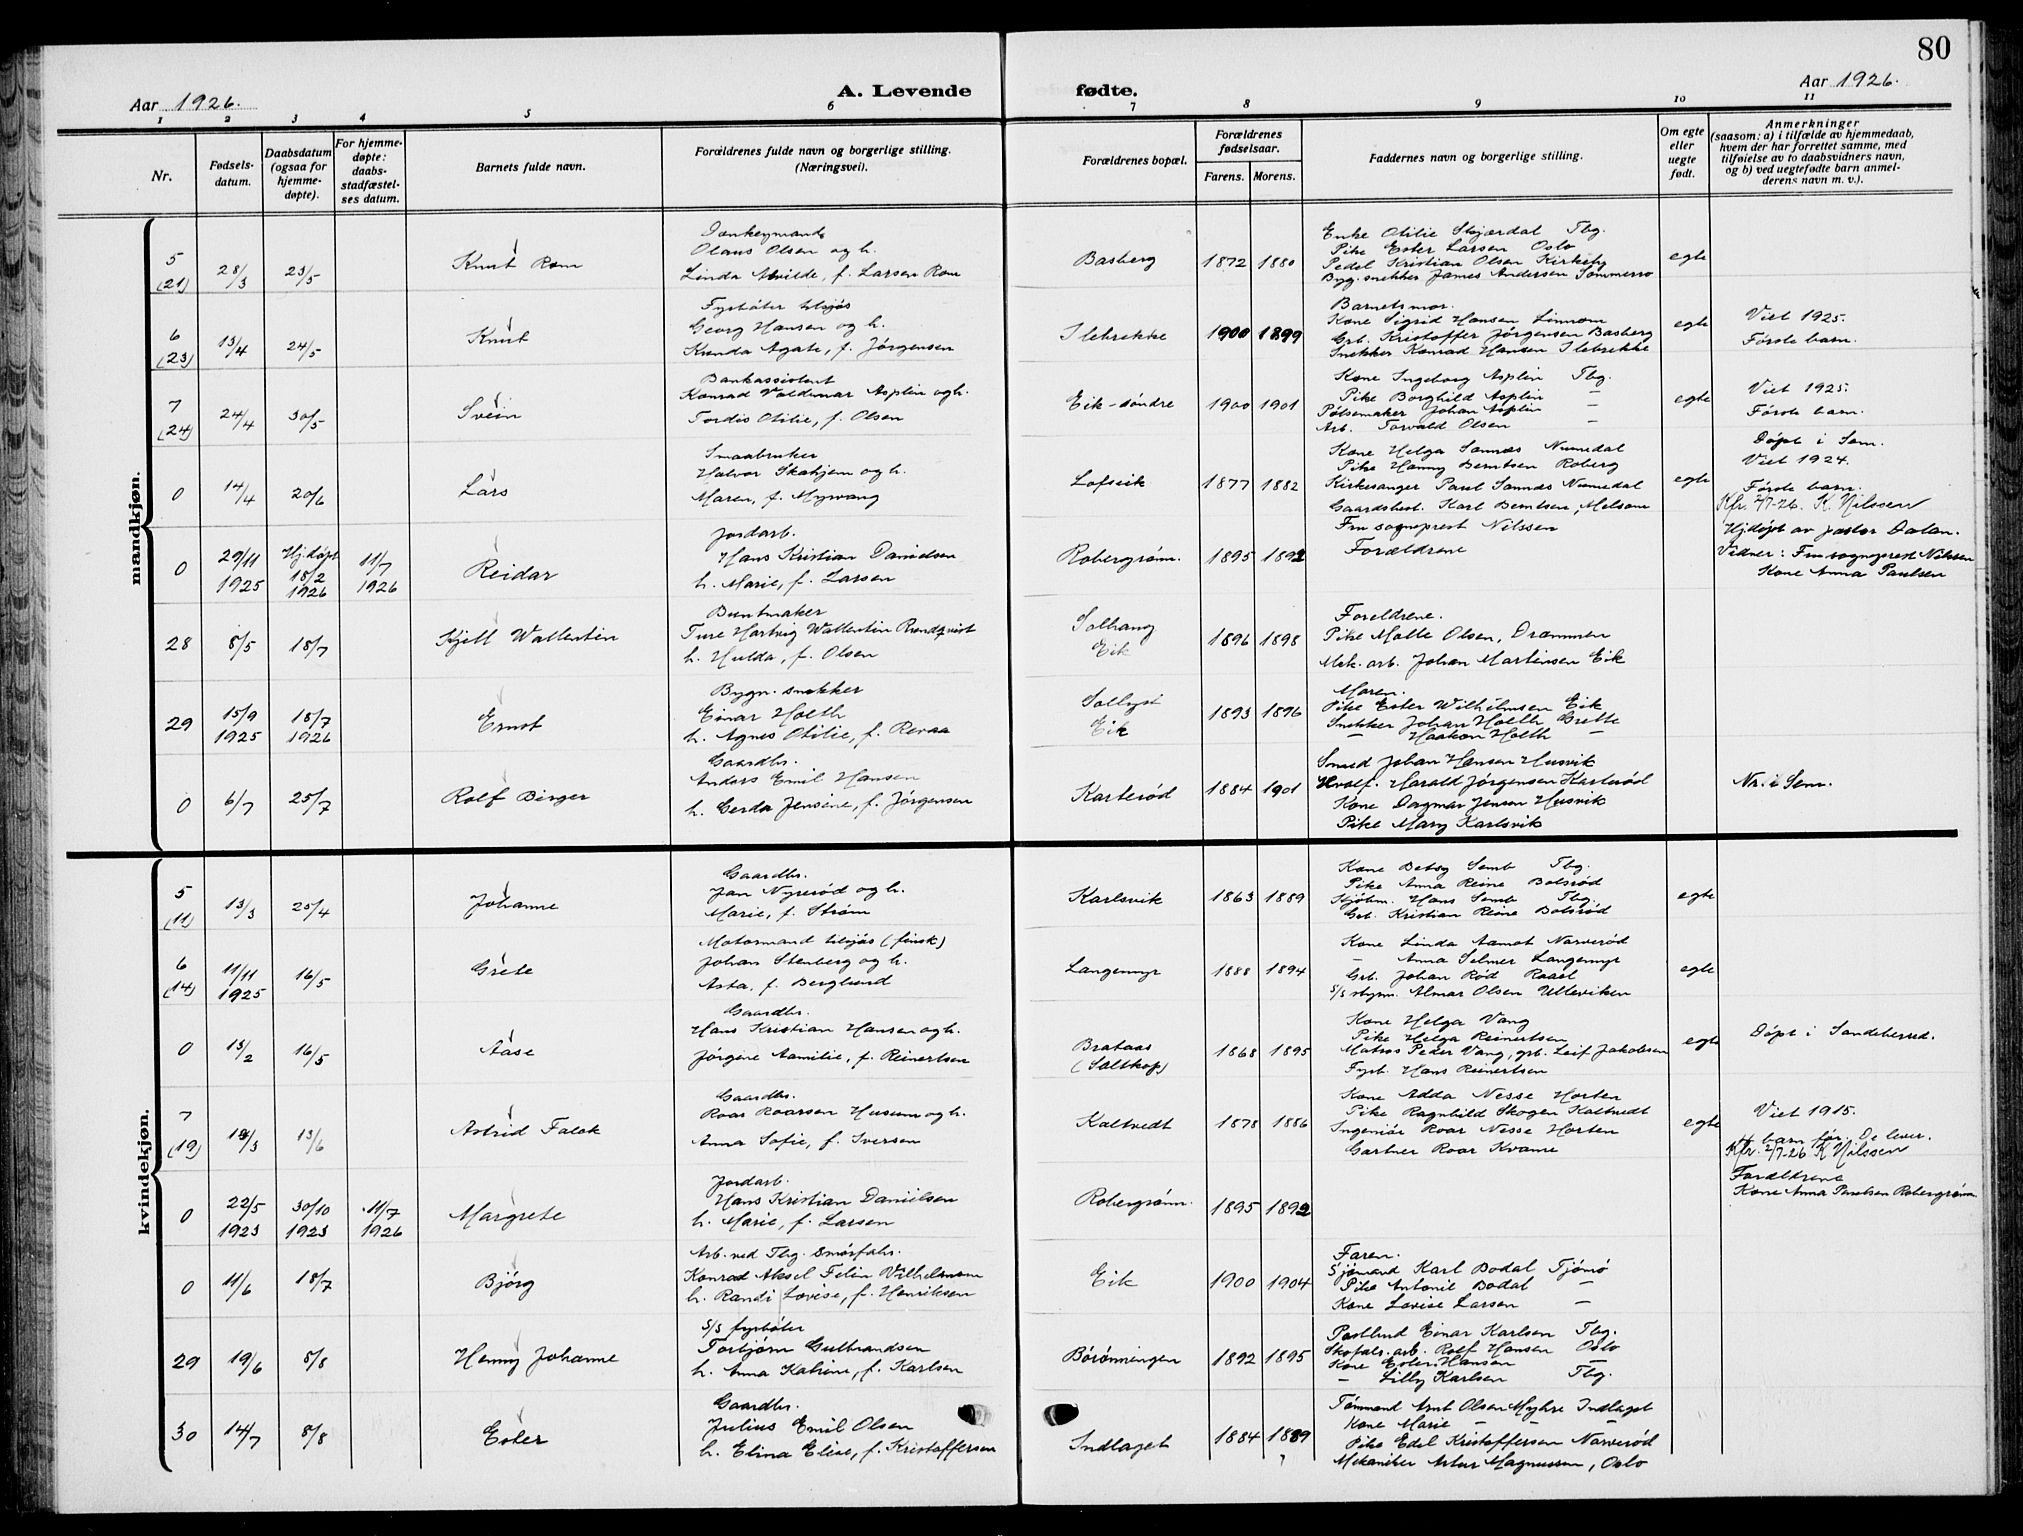 80
Aar 1926.
A. Levende fødte.
Aar 1926.
1 2 3 4 5 6 7 8 9 10 11
Nr.
Fødsels-
datum.
Daabsdatum
(ogsaa for
hjemme-
døpte).
For hjemme-
døpte:
daabs-
stadfæstel-
ses datum.
Barnets fulde navn.
Forældrenes fulde navn og borgerlige stilling.
(Næringsvei).
Forældrenes bopæl.
Forældrenes
fødselsaar.
Farens. Morens.
Faddernes navn og borgerlige stilling.
Om egte
eller
uegte
født.
Anmerkninger
(saasom: a) i tilfælde av hjemmedaab,
hvem der har forrettet samme, med
tilføielse av to daabsvidners navn,
og b) ved uegtefødte barn anmel-
derens navn m. v.).
mandkjøn.
5
(21)
28/3
23/5
Knut Rom
Olaus Olsen og h.
Linda Alvilde, f. Larsen Rom
Basberg
1872 1880
Enke Otilie Skjærdal Tbg.
Pike Ester Larsen Oslo
Pedel Kristian Olsen Kirkeby
Byg. snekker James Andersen Sommerro
egte
6
(23)
13/4
24/5
Knut
Fyrbøter tilsjøs
Georg Hansen og h.
Kunda Agate, f. Jørgensen
Ilebrekke
1900 1899
Barnets mor.
Kone Sigrid Hansen Linnom
Grb. Kristoffer Jørgensen Basberg
Snekker Konrad Hansen Ilebrekke
egte
Viet 1925.
Første barn.
7
(24)
24/4
30/5
Svein
Bankassistent
Konrad Valdemar Asplin og h.
Tordis Otilie, f. Olsen
Eik-søndre
1900 1901
Kone Ingeborg Asplin Tbg.
Pike Borghild Asplin —
Pølsemaker Johan Asplin —
Arb. Torvald Olsen —
egte
Viet 1925.
Første barn.
0
14/4
20/6
Lars
Smaabruker
Halvor Skahjem og h.
Maren, f. Myrvang
Lofsvik
1877 1882
Kone Helga Sannæs Numedal
Pike Hanny Berntsen Roberg
Kirkesanger Paul Sannæs Numedal
Gaardsbest. Karl Berntsen, Melsom
Fru sogneprest Nilssen
egte
Døpt i Sem.
Viet 1924.
Første barn.
Kfr. 2/7-26. K. Nilssen
0
29/11
1925
Hj.døpt
18/2
1926
11/7
1926
Reidar
Jordarb.
Hans Kristian Danielsen
h. Marie, f. Larsen
Robergrønn.
1895 1892
Forældrene
Hj.døpt av pastor Dalan.
Vidner: Fru sogneprest Nilssen
Kone Anna Paulsen
28
8/5
18/7
Kjell Wallentin
Buntmaker
Ture Hartvig Wallentin Rundqvist
h. Hulda, f. Olsen
Solhaug
Eik
1896 1898
Foreldrene.
Pike Malle Olsen, Drammen
Mek. arb. Johan Martinsen Eik
29
15/9
1925
18/7
1926
Ernst
Bygn. snekker
Einar Holth
h. Agnes Otilie, f. Revaa
Sollyst
Eik
1893 1896
Moren.
Pike Ester Wilhelmsen Eik
Snekker Johan Holth Grette
— Haakon Holth —
0
6/7
25/7
Rolf Birger
Gaardbr.
Anders Emil Hansen
h. Gerda Jensine, f. Jørgensen
Karterød
1884 1901
Smed Johan Hansen Husvik
Hvalf. Harald Jørgensen Karterød
Kone Dagmar Jensen Husvik
Pike Mary Karlsvik
Nr. i Sem.
kvindekjøn.
5
(11)
13/3
25/4
Johanne
Gaardbr.
Jan Nyrerød og h.
Marie, f. Strøm
Karlsvik
1863 1889
Kone Betsy Semb Tbg.
Pike Anna Reine Bolsrød
Skjøbm. Hans Semb Tbg.
Grb. Kristian Reine Bolsrød
egte
6
(14)
11/11
1925
16/5
Grete
Motormand tilsjøs (finsk)
Johan Stenberg og h.
Asta, f. Berglund
Langemyr
1888 1894
Kone Linda Aamot Narverød
— Anna Selmer Langemyr
Grb. Johan Rød Raael
S/S styrm. Almar Olsen Ulleviken
egte
0
13/2
16/5
Aase
Gaardbr.
Hans Kristian Hansen og h.
Jørgine Aamilie, f. Reinertsen
Brataas
(Saltkop)
1868 1895
Kone Helga Vang
Pike Helga Reinertsen
Matros Peder Vang, grb. Leif Jakobsen
Fyrb. Hans Reinertsen
egte
Døpt i Sandeherred.
7
(19)
13/6
Astrid Falck
Gaardbr.
Roar Roarsen Husum og h.
Anna Sofie, f. Iversen
Kaltvedt
1878 1886
Kone Adda Nesse Horten
Pike Ragnhild Skogen Kaltvedt
Ingeniør Roar Nesse Horten
Gartner Roar Kvame
egte
Viet 1915.
4 barn før. De lever.
Kfr. 2/7-26 K Nilssen
0
22/5
1923
30/10
1923
11/7
1926
Margrete
Jordarb.
Hans Kristian Danielsen
h. Marie, f. Larsen
Robergrønn.
1895 1892
Forældrene
Kone Anna Paulsen Robergrønn
0
11/6
18/7
Bjørg
Arb. ved Tbg. Smørfabr.
Konrad Aksel Felin Vilhelmsen
h. Randi Lovise, f. Henriksen
Eik
1900 1904
Faren.
Sjømand Karl Bodal Tjømø
Pike Antonil Bodal —
Kone Lovise Larsen —
29
19/6
8/8
Henny Johanne
S/S fyrbøter
Torbjørn Gulbrandsen
h. Anna Katrine, f. Karlsen
Børønningen
1892 1895
Postbud Einar Karlsen Tbg.
Skofabr. arb. Rolf Hansen Oslo
Kone Ester Hansen —
— Lilly Karlsen Tbg.
30
14/7
8/8
Ester
Gaardbr.
Julius Emil Olsen
h. Elina Elise, f. Kristoffersen
Indlaget
1884 1889
Tømmand Arnt Olsen Myhre Indlaget
Kone Marie — — —
Pike Edel Kristoffersen Narverød
Mekaniker Artur Magnussen, Oslo